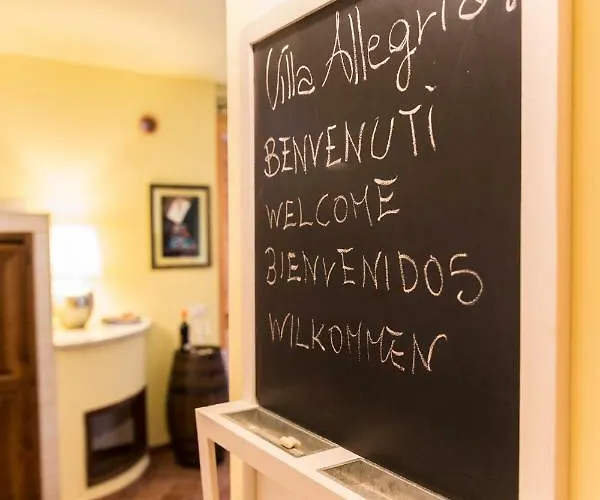 Villa Allegria!
BENVENUTI
WELCOME
BIENVENIDOS
WILKOMMEN